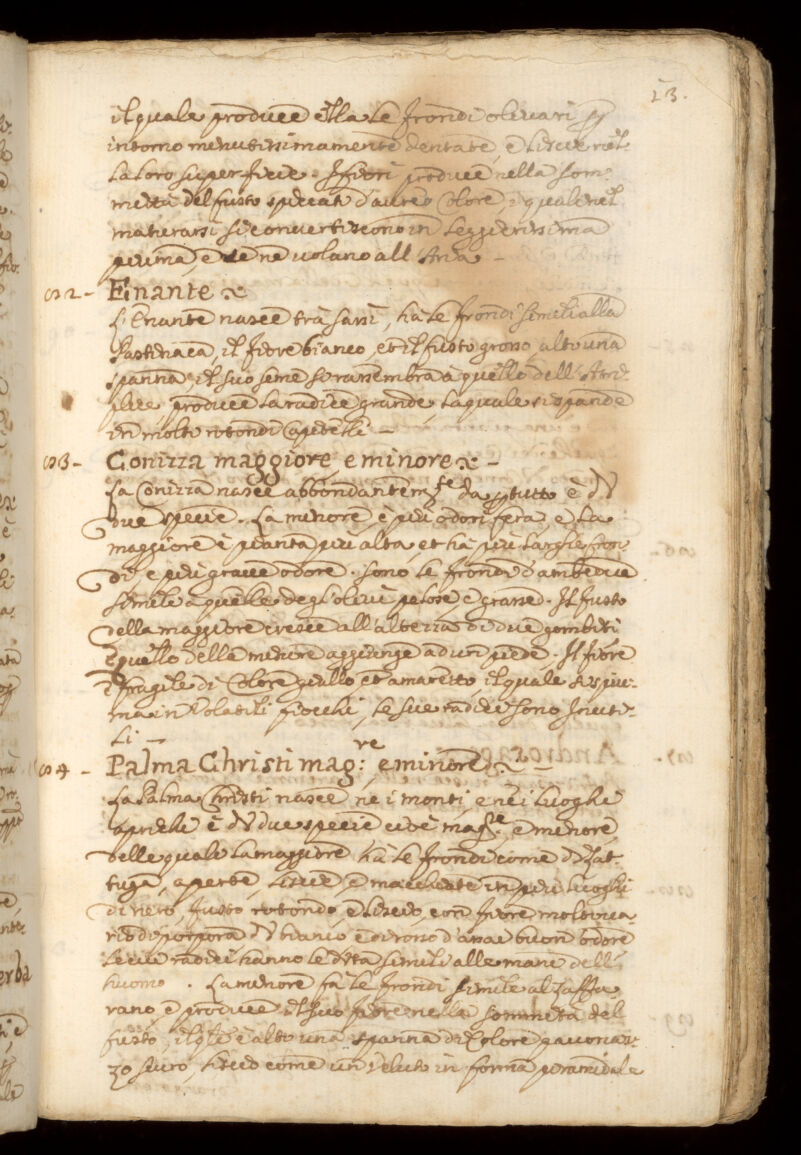 13.
il quale produce ella le frondi olivari p
intorno menutissimamente dentate, e liscie nel
la loro superficie. I fiori produce nella som-
mità del fusto spiccati d'aureo colore i quali nel
maturarsi si convertiscono in leggierissima
piuma, e se ne volano all'Aria -
92 - Enante
L'Enante nasce trà sassi, hà le frondi simili alla
Pastinaca, il fiore bianco, et il fusto grosso alto una
spanna, il suo seme rassembra à quello dell'Atri-
plice produce la radice grande, la quale si spande
in molti rotondi capitelli -
93 - Conizza maggiore, e minore -
La Conizza nasce abbondantem:te da p tutto è di
due specie. La minore è più odorifera, e la
maggiore è pianta più alta, et hà più larghe fron-
di e più grave odore. Sono le frondi d'ambedue
simile a quelle degl'olivi pelose, e grasse. Il fusto
della maggiore cresce all'altezza di due gombiti
e quello della minore aggiunge ad un piede. Il fiore
è fragile di colore giallo, et amaretto, il quale si spiu-
ma in volatili fiocchi, le sue radici sono inuti-
li -
94 - Palma Christi mag:re e minore -
La Palma Christi nasce ne i monti, e nei luoghi
aprichi è di due specie cioè mag:re e minore,
delle quale la maggiore hà le frondi come di lat-
tuga, aperte, liscie, e macchiate in più luoghi
di nero, fusto rotondo, e liscio, con fiore molto va-
rio di porpora di bianco e di rosso d'assai buon odore
le cui radici hanno le dita simili alle mani dell'
huomo. La minore fà le frondi simile al zaffa-
rano, e produce il suo fiore nella sommità del
fusto, il q:le è alto una spanna di colore pauonaz-
zo scuro, liscio come un veluto in forma piramidale